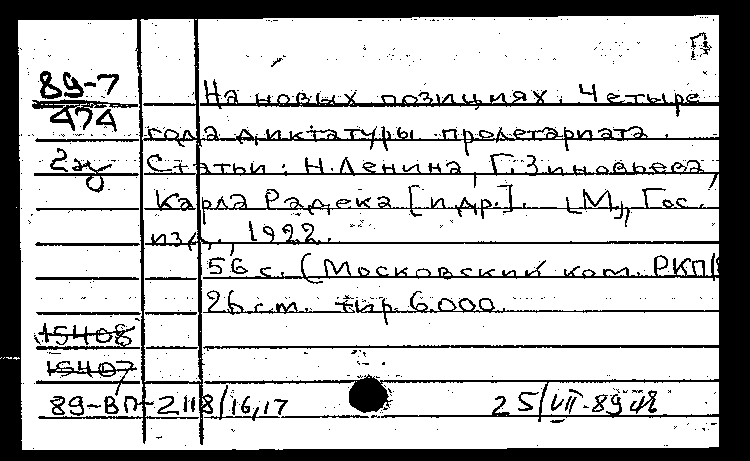 П
89-7
474
2эк
На новых позициях. Четыре
года диктатуры пролетариата.
Статьи: Н.Ленина, Г.Зиновьева,
Карла Радека [и др.]. [М.], Гос.
изд., 1922.
56 с. (Московский ком. РКП/б
26 см. тир. 6.000.
15408
15407
89-ВП-2118/16,17
25/VII-89